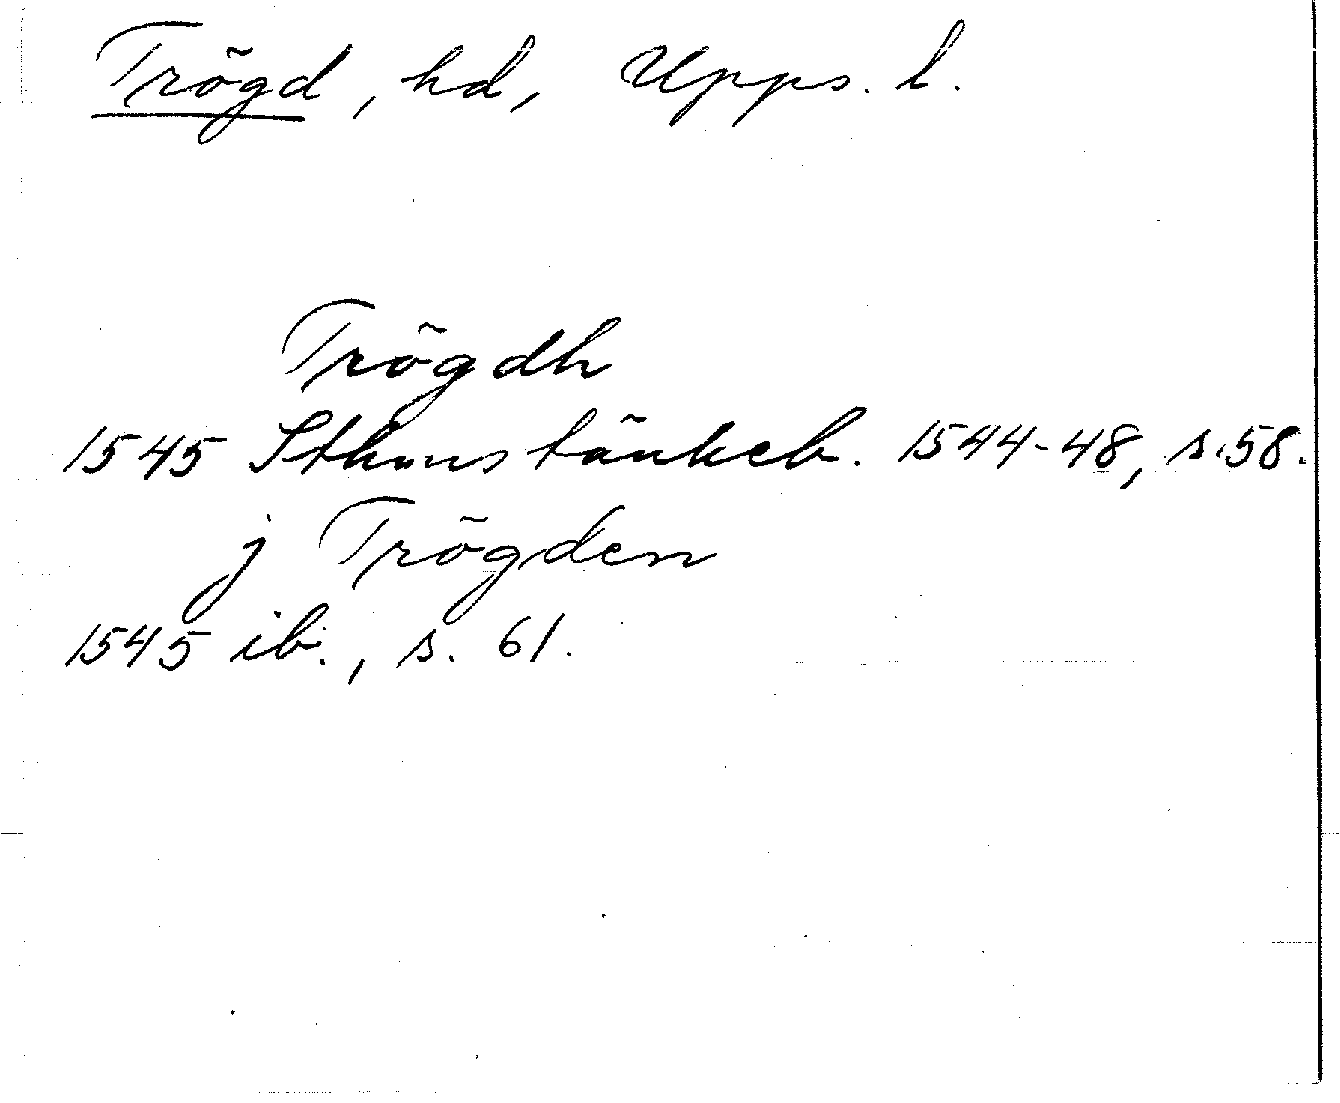 Trögd, hd, Upps. l.
Trögdh
1545 Sthms tänkeb. 1544-48, s. 58.
j Trögden
1545 ib., s. 61.